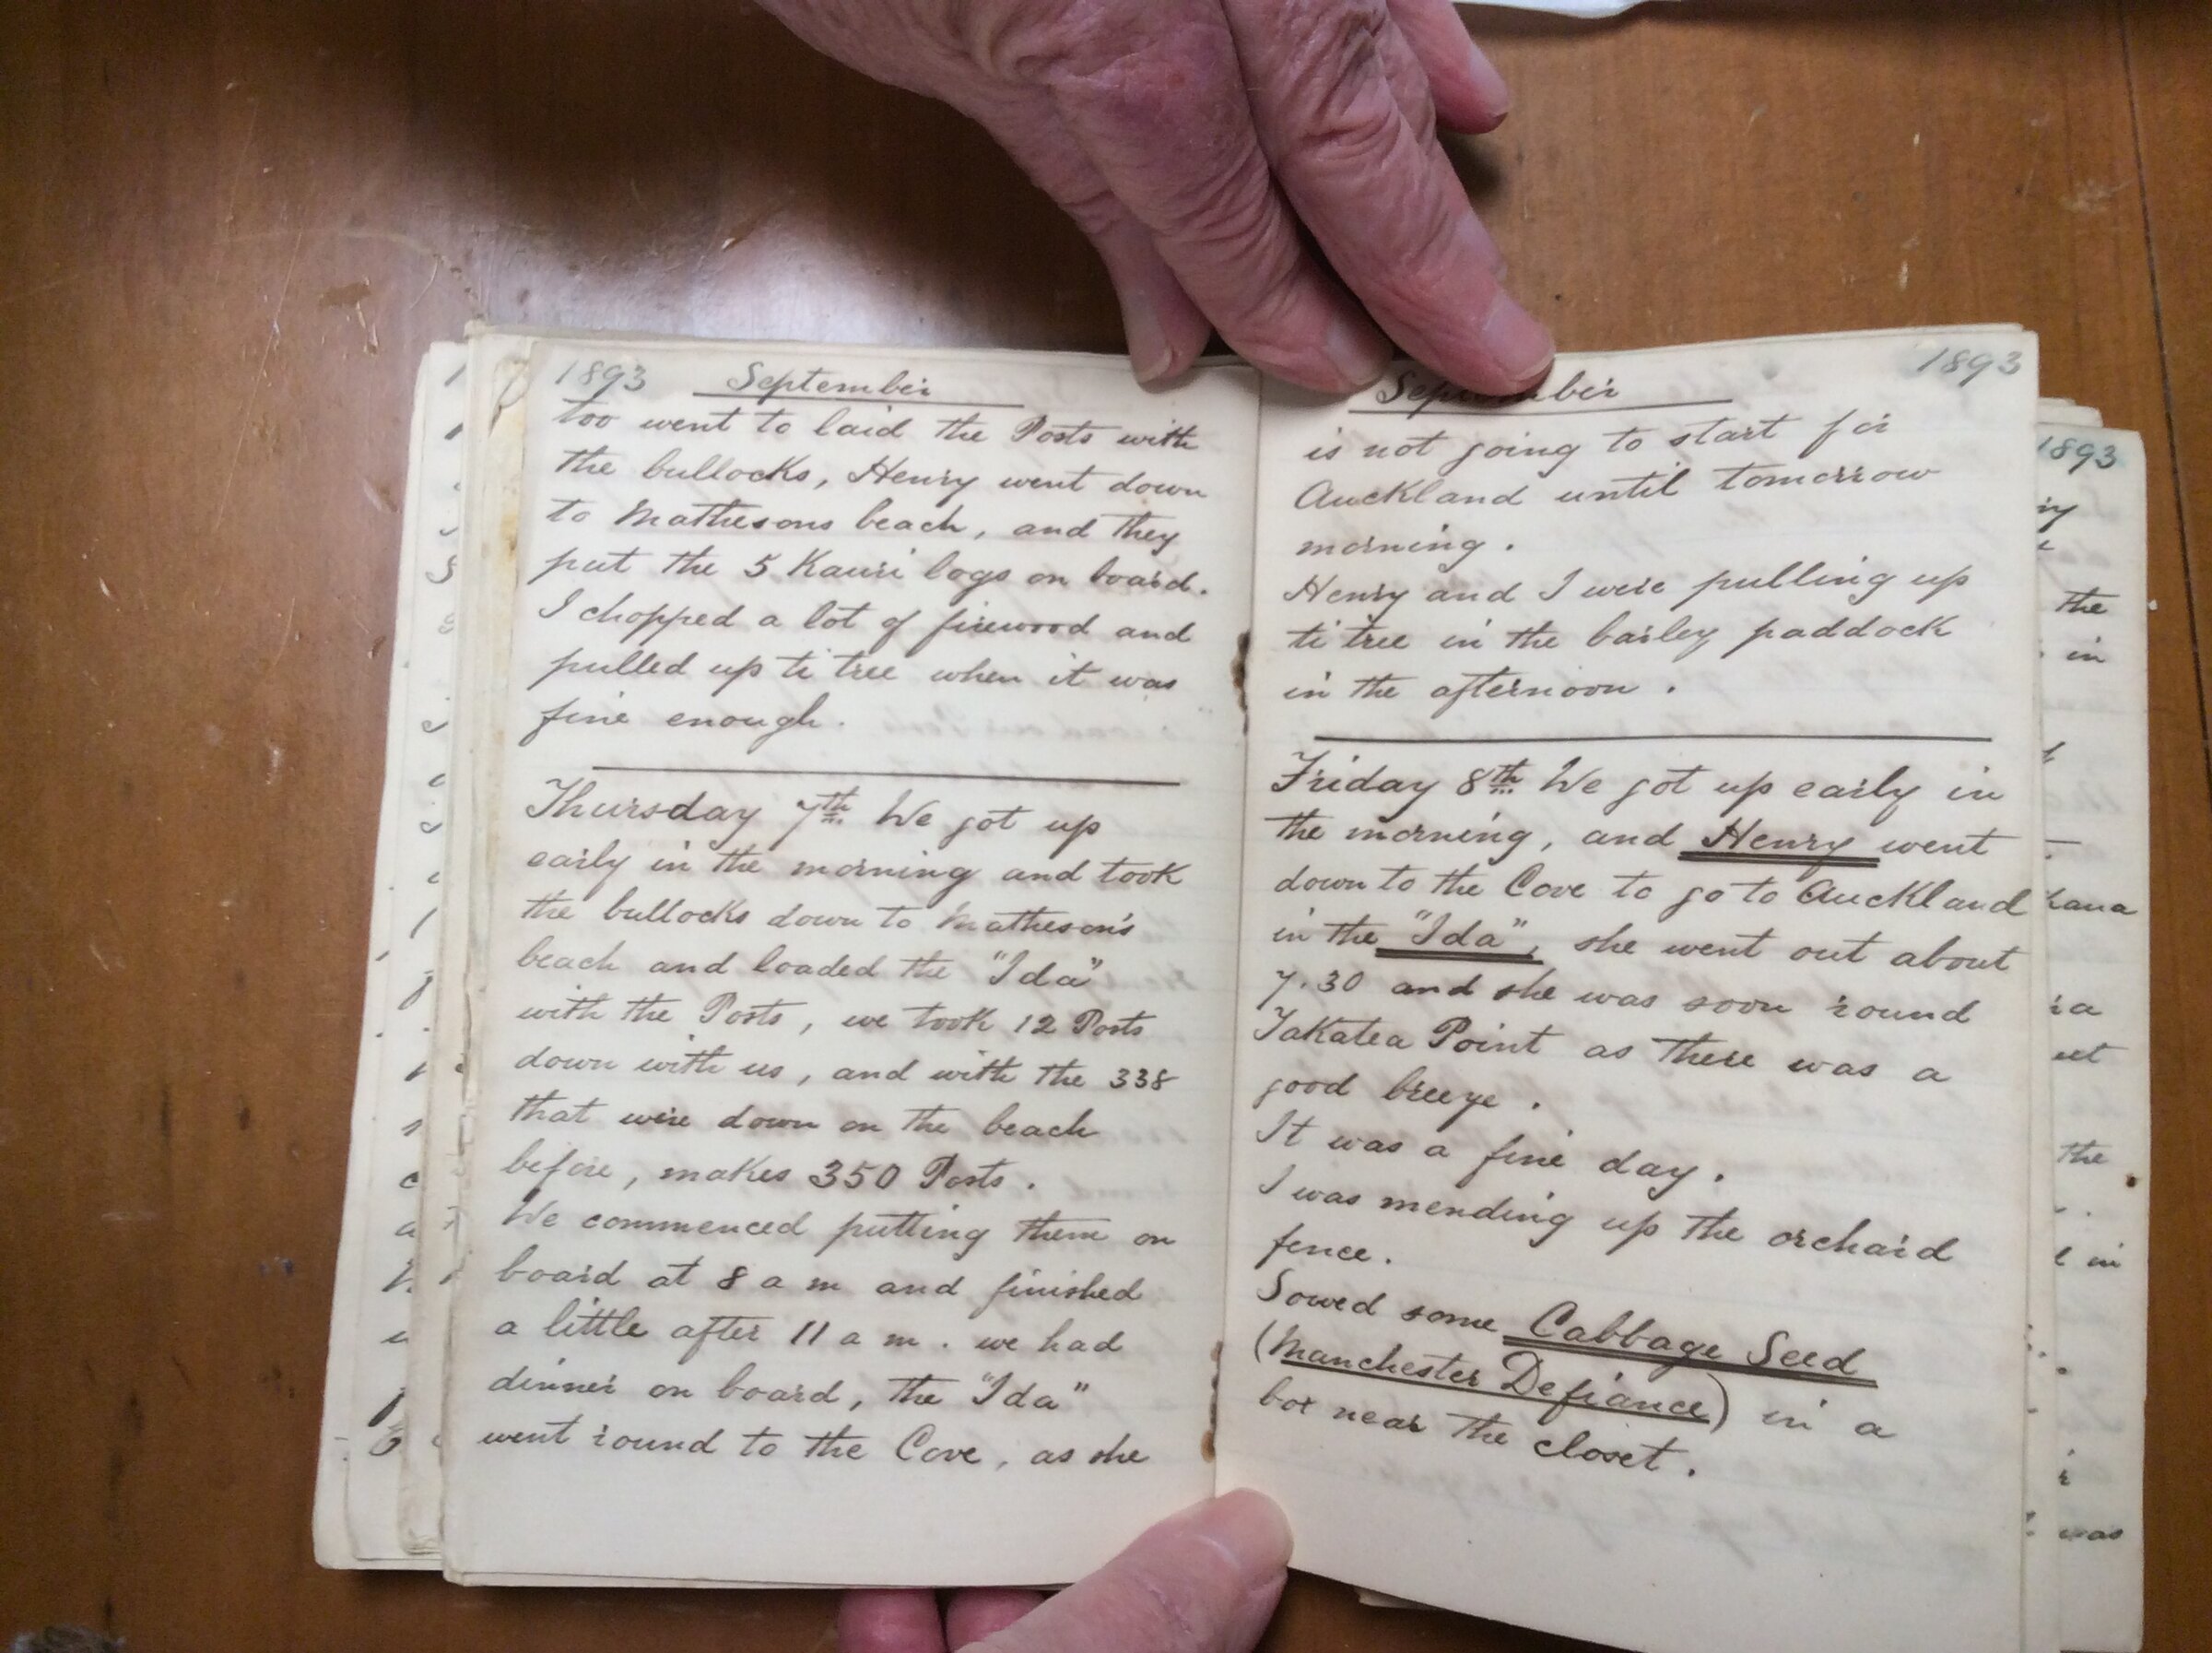 1893 September
too went to laid the Posts with
the bullocks, Henry went down
to Mathesons beach, and they
put the 5 Kauri logs on board.
I chopped a lot of firewood and
pulled up ti tree when it was
fine enough.
Thursday 7th We got up
early in the morning and took
the bullocks down to Matheson's
beach and loaded the "Ida"
with the Posts, we took 12 Posts
down with us, and with the 338
that were down on the beach
before, makes 350 Posts.
We commenced putting them on
board at 8 a m and finished
a little after 11 a m. we had
dinner on board, the "Ida"
went round to the Cove, as she
September 1893
is not going to start for
Auckland until tomorrow
morning.
Henry and I were pulling up
ti tree in the barley paddock
in the afternoon.
Friday 8th We got up early in
the morning, and Henry went
down to the Cove to go to Auckland
in the "Ida", she went out about
7.30 and she was soon round
Takatea Point as there was a
good breeze.
It was a fine day.
I was mending up the orchard
fence.
Sowed some Cabbage Seed
(Manchester Defiance) in a
box near the closet.
1893
the
in
the
in
was